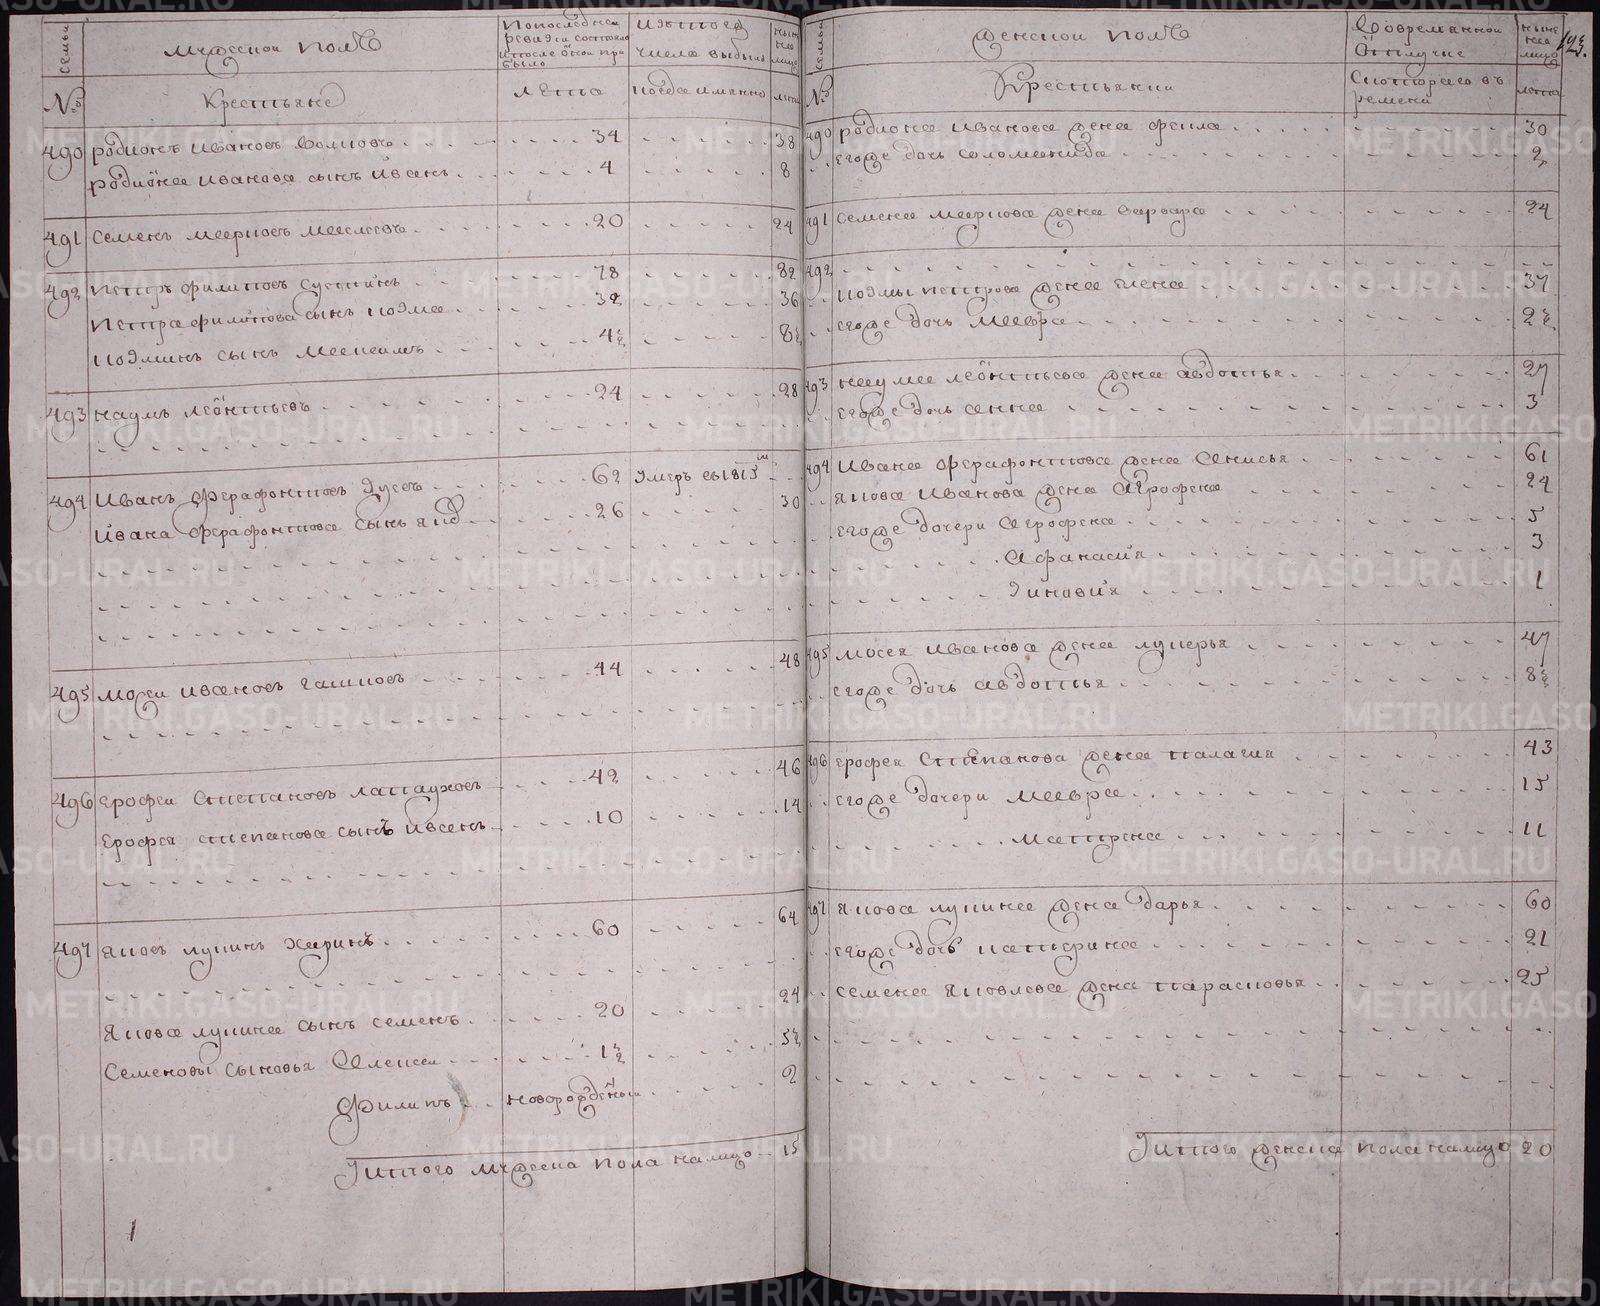 семьи
№й
мужескои полъ
Крестьяне
По последнеи
ревизии состояло
и после оной при
было
лета
Изъ того
числа выбыло
когда имянно
ныне
на
лицо
лета
490 родионъ Ивановъ 34 38
родиона иванова сынъ Ивсеи 4 8
491 семенъ марковъ 20 24
492 петръ филиповъ 78 82
петра филипова сынъ козма 32 36
козминъ сынъ максимъ 4½ 8½
493 наумъ леонтьевъ 24 28
494 Иванъ ферафонтовъ Гусевъ 62 Умеръ въ 1813м
Ивана ферафонтова сынъ яков 26 30
495 мосеи ивановъ галиновъ 44 48
496 ерофеи Степановъ лапауховъ 42 46
ерофея степанова сынъ Ивсеи 10 14
497 яковъ лукинъ Харинъ 60 64
якова лукина сынъ семенъ 20 24
Семеновы сыновья Алексеи 1½ 5½
Филипъ новорожденыи 2
Итого мужеска пола налицо 15
1
семьи
№
женскои полъ
Крестьянки
Во временнои
отлучке
Скоторого въ
ремени
ныне
на
лицо
лета
123.
490 родиона Иванова жена фекла 30
егоже дочь соломонида 2
491 семена маркова жена варвара 24
492
козмы петрова жена елена 37
егоже дочь мавра 2½
493 наума леонтьева жена авдотья 27
егоже дочь анна 3
494 Ивана ферафонтова жена Анисья 61
якова Иванова жена Агрофена 24
егоже дочери агрофена 5
Афанасия 3
Зиновия 1
495 мосея Иванова жена лукерья 47
егоже дочь авдотья 8½
496 ерофея Степанова жена палагия 43
егоже дочери мавра 15
матрена 11
497 якова лукина жена дарья 60
егоже дочь катерина 21
семена яковлева жена парасковья 25
Итого женска пола налицо 20
METRIKI.GASO-URAL.RU